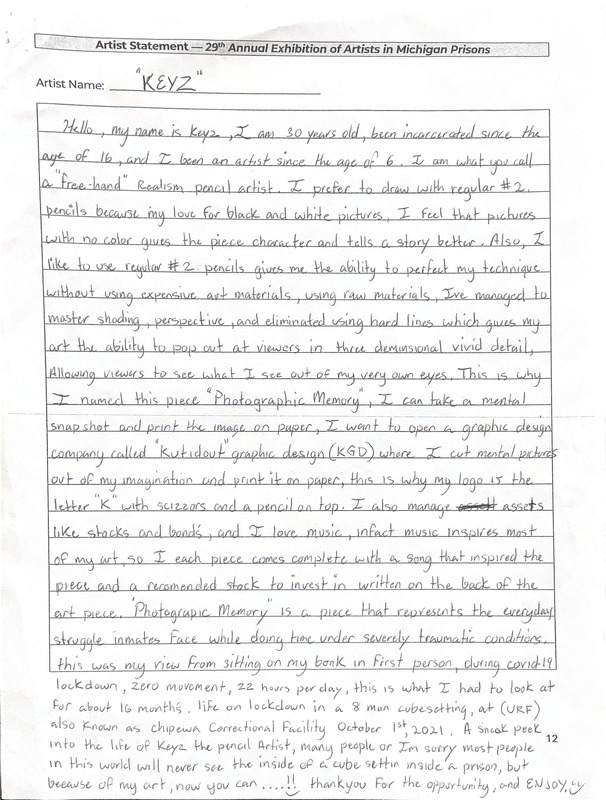 Artist Statement — 29th Annual Exhibition of Artists in Michigan Prisons
Artist Name: "KEYZ"
Hello, my name is Keyz, I am 30 years old, been incarcerated since the
age of 16, and I been an artist since the age of 6. I am what you call
a "free-hand" Realism pencil artist. I prefer to draw with regular #2.
pencils because my love for black and white pictures, I feel that pictures
with no color gives the piece character and tells a story better. Also, I
like to use regular #2. pencils gives me the ability to perfect my technique
without using expensive art materials, using raw materials, Ive managed to
master shading, perspective, and eliminated using hard lines which gives my
art the ability to pop out at viewers in three deminsional vivid detail,
Allowing viewers to see what I see out of my very own eyes. This is why
I named this piece "Photographic Memory", I can take a mental
snapshot and print the image on paper, I want to open a graphic design
company called "Kutidout" graphic design (KGD) where I cut mental pictures
out of my imagination and print it on paper, this is why my logo is the
letter "K" with scizzors and a pencil on top. I also manage assett assets
like stocks and bonds, and I love music, infact music inspires most
of my art, so I each piece comes complete with a song that inspired the
piece and a recomended stock to invest in written on the back of the
art piece. "Photograpic Memory" is a piece that represents the everyday
struggle inmates face while doing time under severely traumatic conditions.
this was my view from sitting on my bunk in first person, during covid19
lockdown, zero movement, 22 hours per day, this is what I had to look at
for about 16 months. life on lockdown in a 8 man cubesetting, at (URF)
also known as chipewa Correctional Facility October 1st, 2021. A sneak peek
into the life of Keyz the pencil Artist, many people or Im sorry most people
in this world will never see the inside of a cube settin inside a prison, but
because of my art, now you can ....!! thankyou for the opportunity, and ENJOY.
12